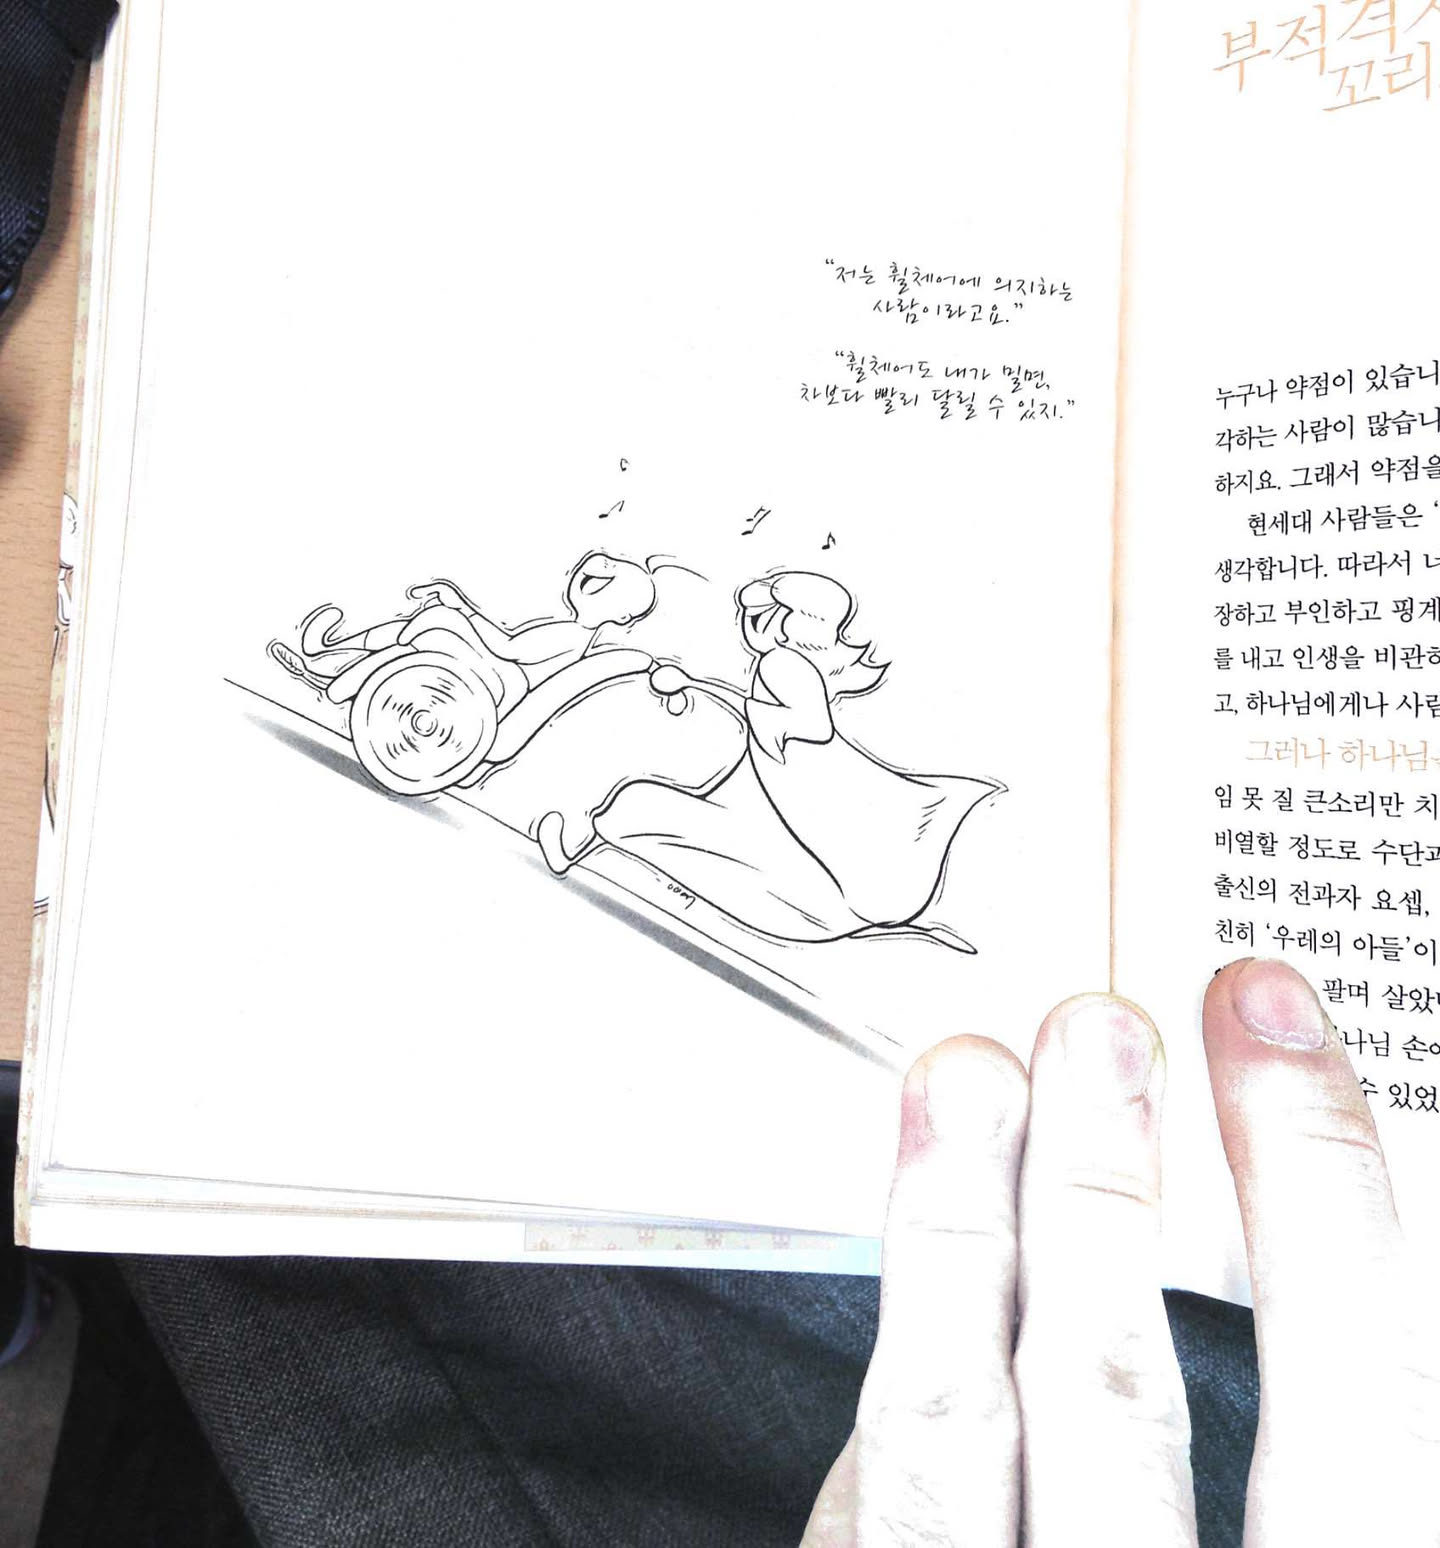 “저는 휠체어에 의지하는
사람이라고요.”
“휠체어도 내가 밀면,
차보다 빨리 달릴 수 있지.”
부적격
꼬리
누구나 약점이 있습니
각하는 사람이 많습니
하지요. 그래서 약점을
현세대 사람들은 ‘
생각합니다. 따라서
장하고 부인하고 핑계
를 내고 인생을 비관
고, 하나님에게나 사람
그러나 하나님
임 못 질 큰소리만 치
비열할 정도로 수단과
출신의 전과자 요셉,
친히 ‘우레의 아들’이
팔며 살았
나님 손
수 있었